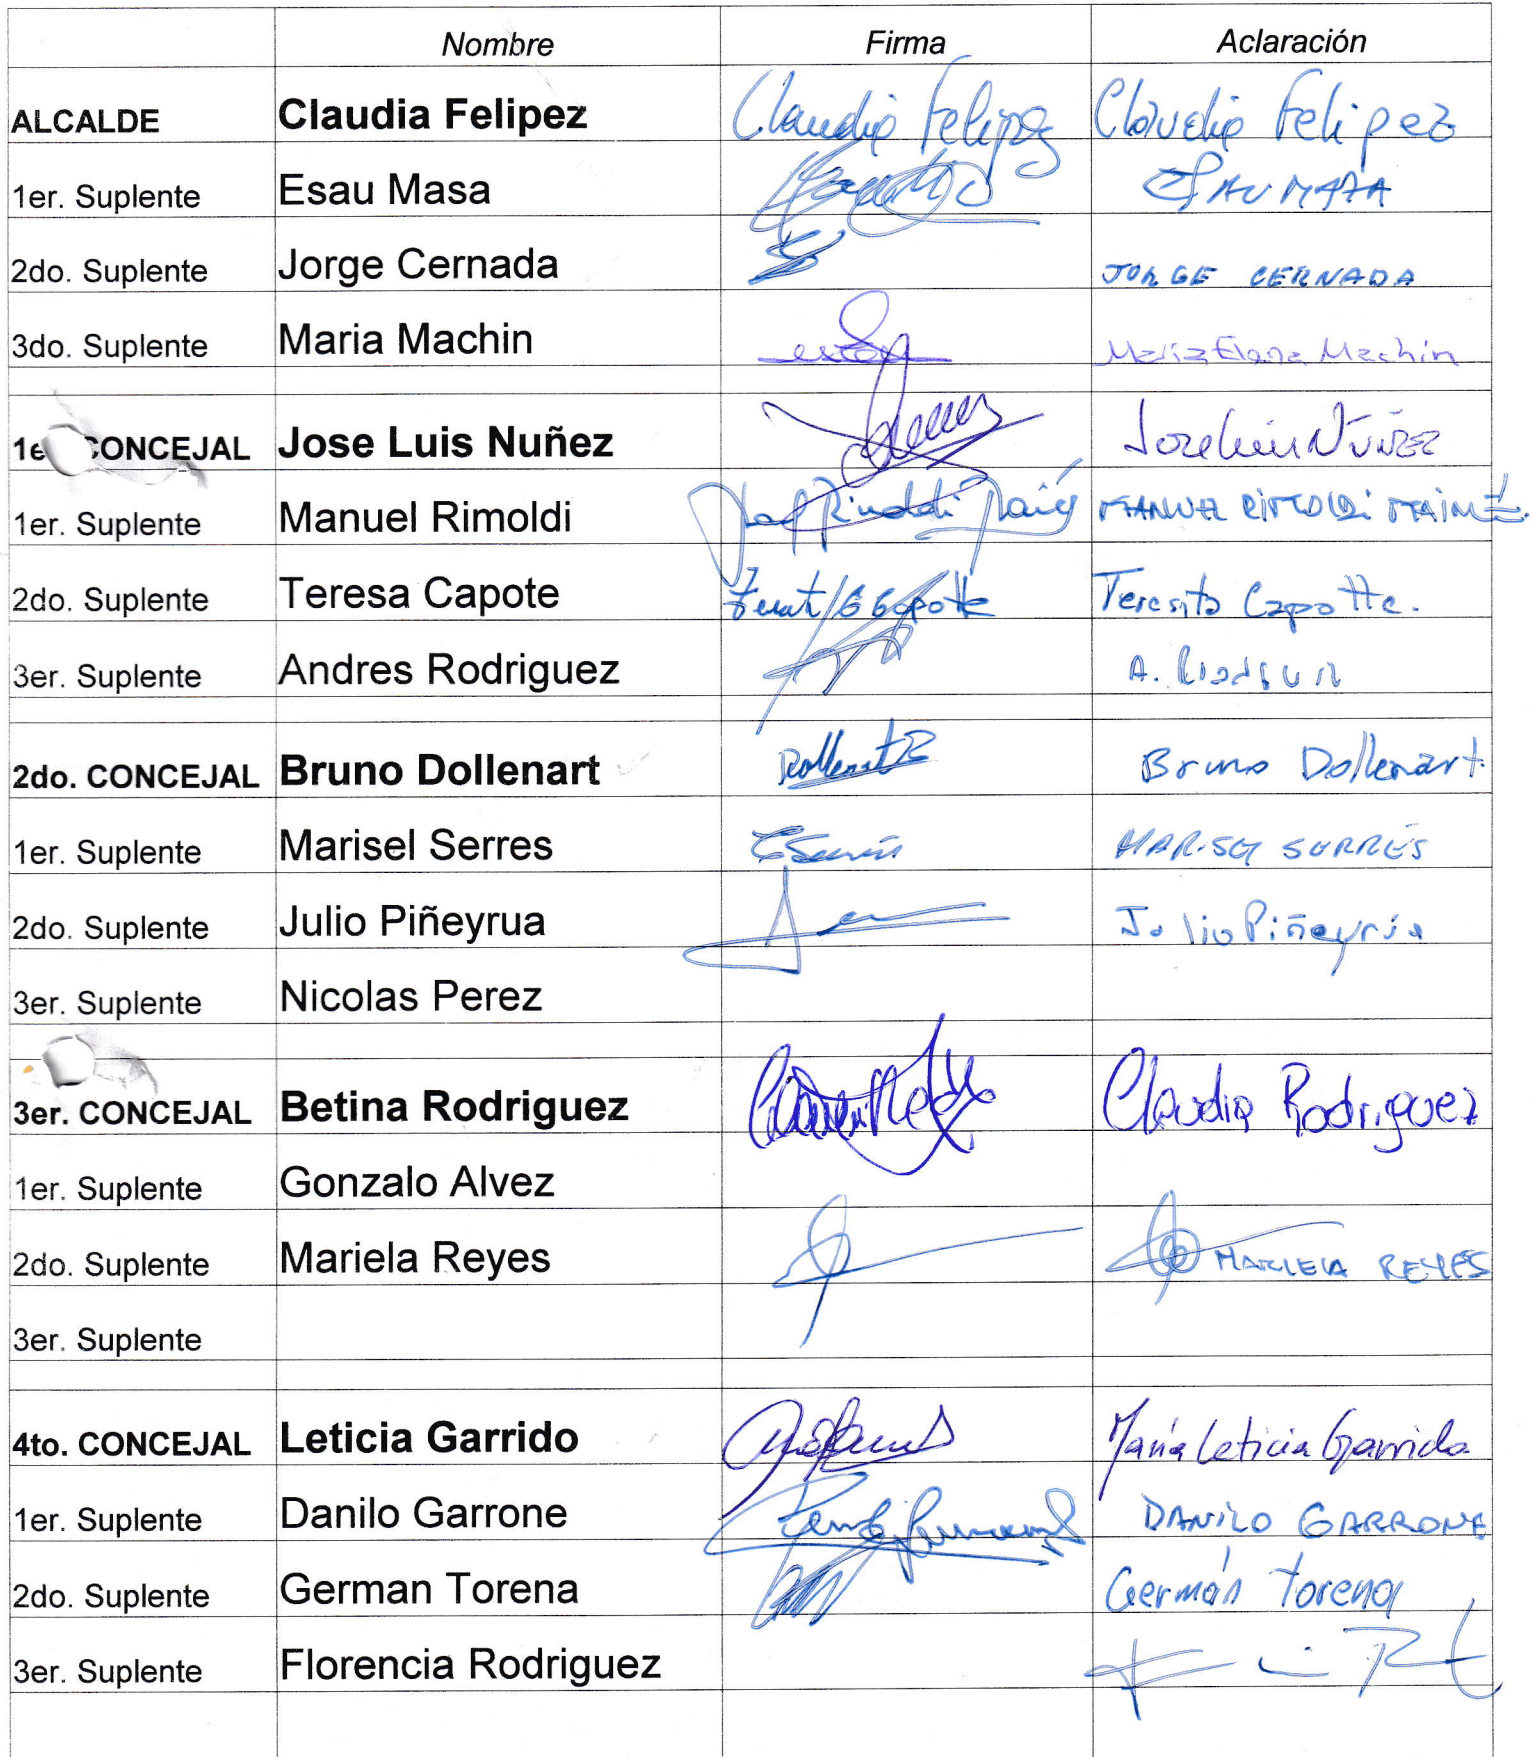 Nombre Firma Aclaración
ALCALDE Claudia Felipez Claudia Felipez Claudia Felipez
1er. Suplente Esau Masa ESAU MAZA
2do. Suplente Jorge Cernada JORGE CERNADA
3do. Suplente Maria Machin Maria Elena Machin
CONCEJAL Jose Luis Nuñez Jose Luis NUÑEZ
1er. Suplente Manuel Rimoldi MANUEL RIMOLDI
2do. Suplente Teresa Capote Teresita Capotte.
3er. Suplente Andres Rodriguez A.
2do. CONCEJAL Bruno Dollenart Bruno Dollenart.
1er. Suplente Marisel Serres MARISEL SERRES
2do. Suplente Julio Piñeyrua Julio Piñeyrúa
3er. Suplente Nicolas Perez
3er. CONCEJAL Betina Rodriguez Claudia Rodriguez
1er. Suplente Gonzalo Alvez
2do. Suplente Mariela Reyes MARIELA REYES
3er. Suplente
4to. CONCEJAL Leticia Garrido María Leticia Garrido
1er. Suplente Danilo Garrone DANILO GARRONE
2do. Suplente German Torena Germán Torena
3er. Suplente Florencia Rodriguez